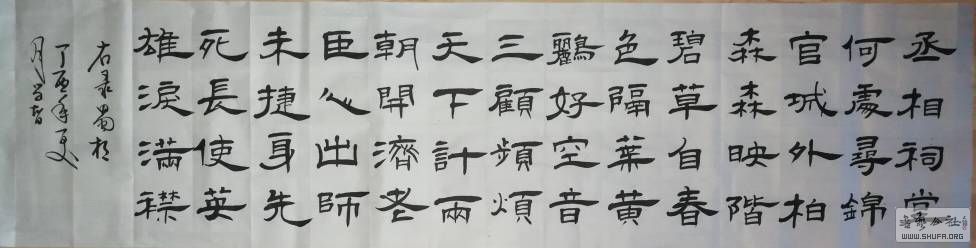 丞相祠堂
何處尋錦
官城外柏
森森映階
碧草自春
色隔葉黃
鸝好空音
三顧頻煩
天下計兩
朝開濟老
臣心出師
未捷身先
死長使英
雄淚滿襟
右录蜀相
丁酉年夏
月
WWW.SHUFA.ORG